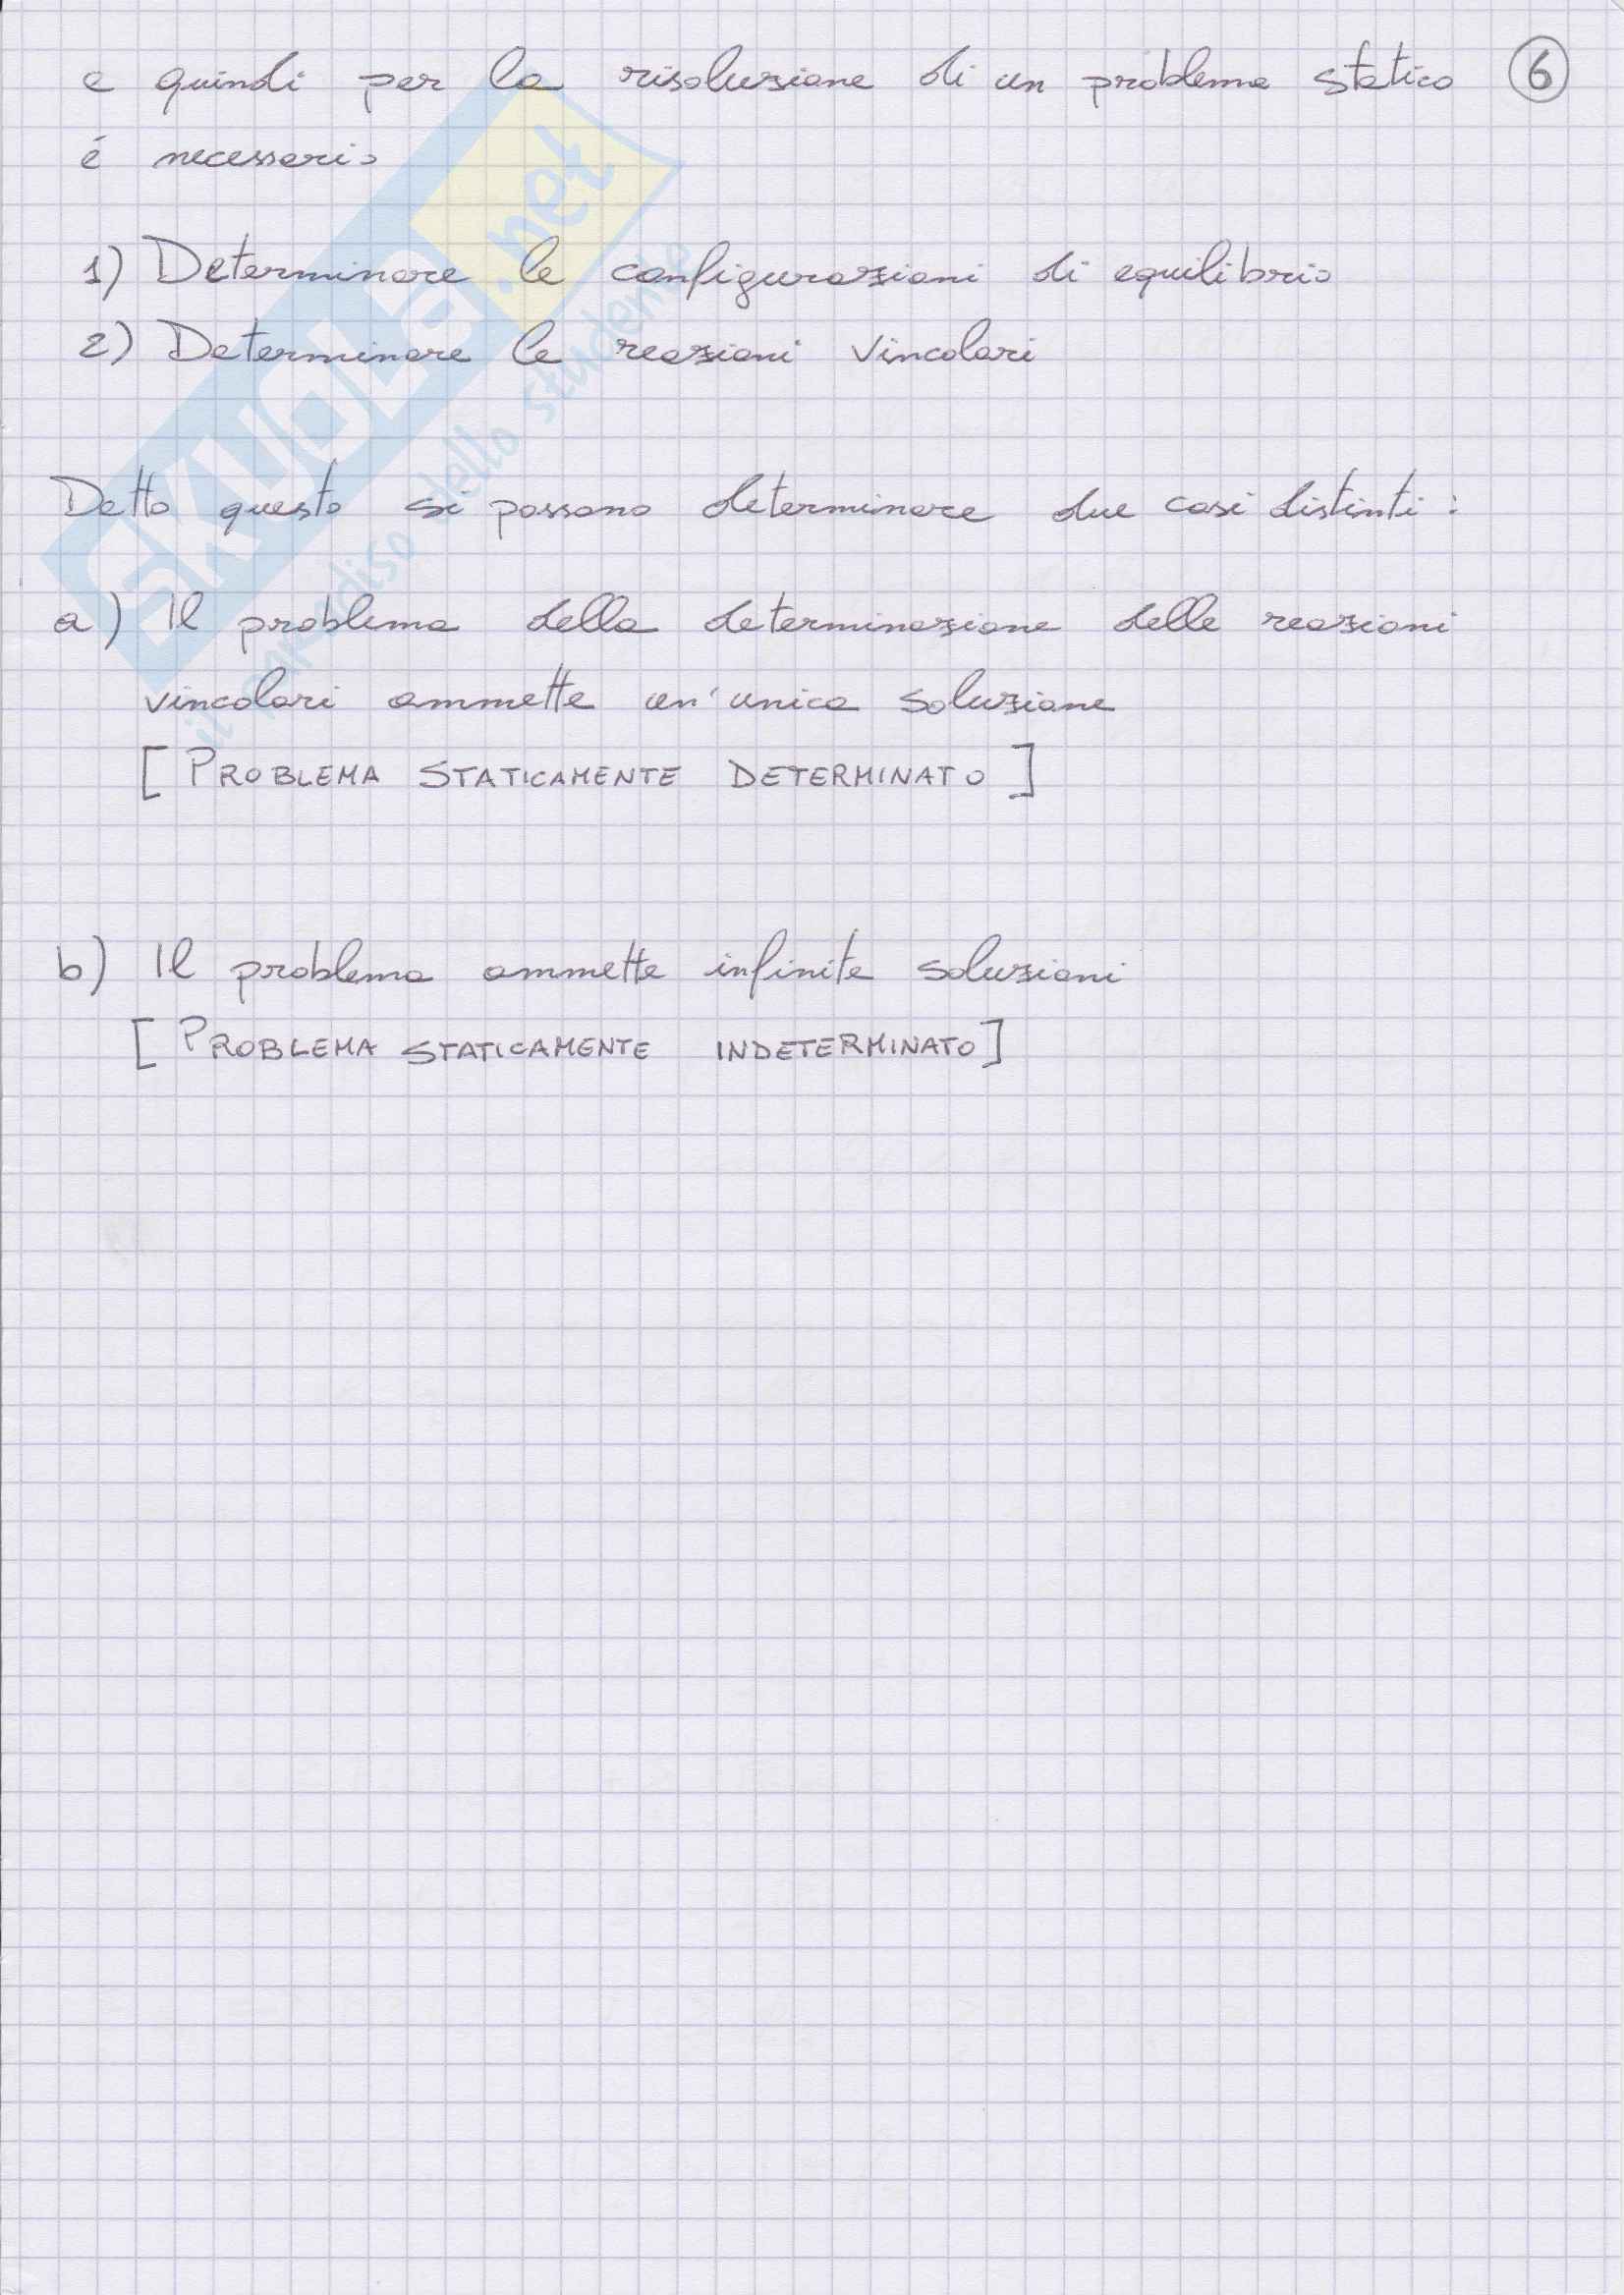 e quindi per la risoluzione di un problema statico 6
é necessario
1) Determinare le configurazioni di equilibrio
2) Determinare le reazioni vincolari
Detto questo si possono determinare due casi distinti :
a) Il problema della determinazione delle reazioni
vincolari ammette un'unica soluzione
[ PROBLEMA STATICAMENTE DETERMINATO ]
b) Il problema ammette infinite soluzioni
[ PROBLEMA STATICAMENTE INDETERMINATO ]
SKUOLA.net
il paradiso dello studente